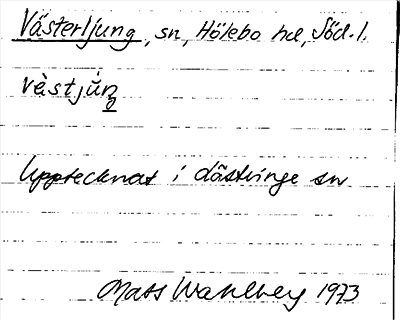 Västerljung, sn, Hölebo hd, Söd.l.
vàstjúŋ
Upptecknat i Västvinge sn
Mats Wahlberg 1973